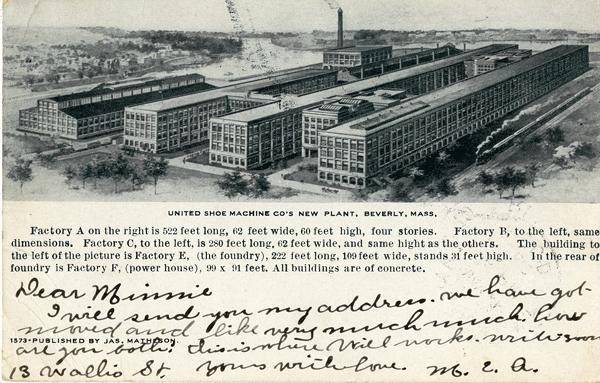 UNITED SHOE MACHINE CO'S NEW PLANT, BEVERLY, MASS,
Factory A on the right is 522 feet long, 62 feet wide, 60 feet high, four stories. Factory B, to the left, same
dimensions. Factory C, to the left, is 280 feet long, 62 feet wide, and same hight as the others. The building to
the left of the picture is Factory E, (the foundry), 222 feet long, 109 feet wide, stands 31 feet high. In the rear of
foundry is Factory F, (power house), 99 x 91 feet. All buildings are of concrete.
Dear Minnie
I will send you my address. we have got
moved and like very much much. how
1573-PUBLISHED BY JAS. MATHESON.
are you both. this is where Will works. write soon
13 Wallis St. yours with love. M. E. A.